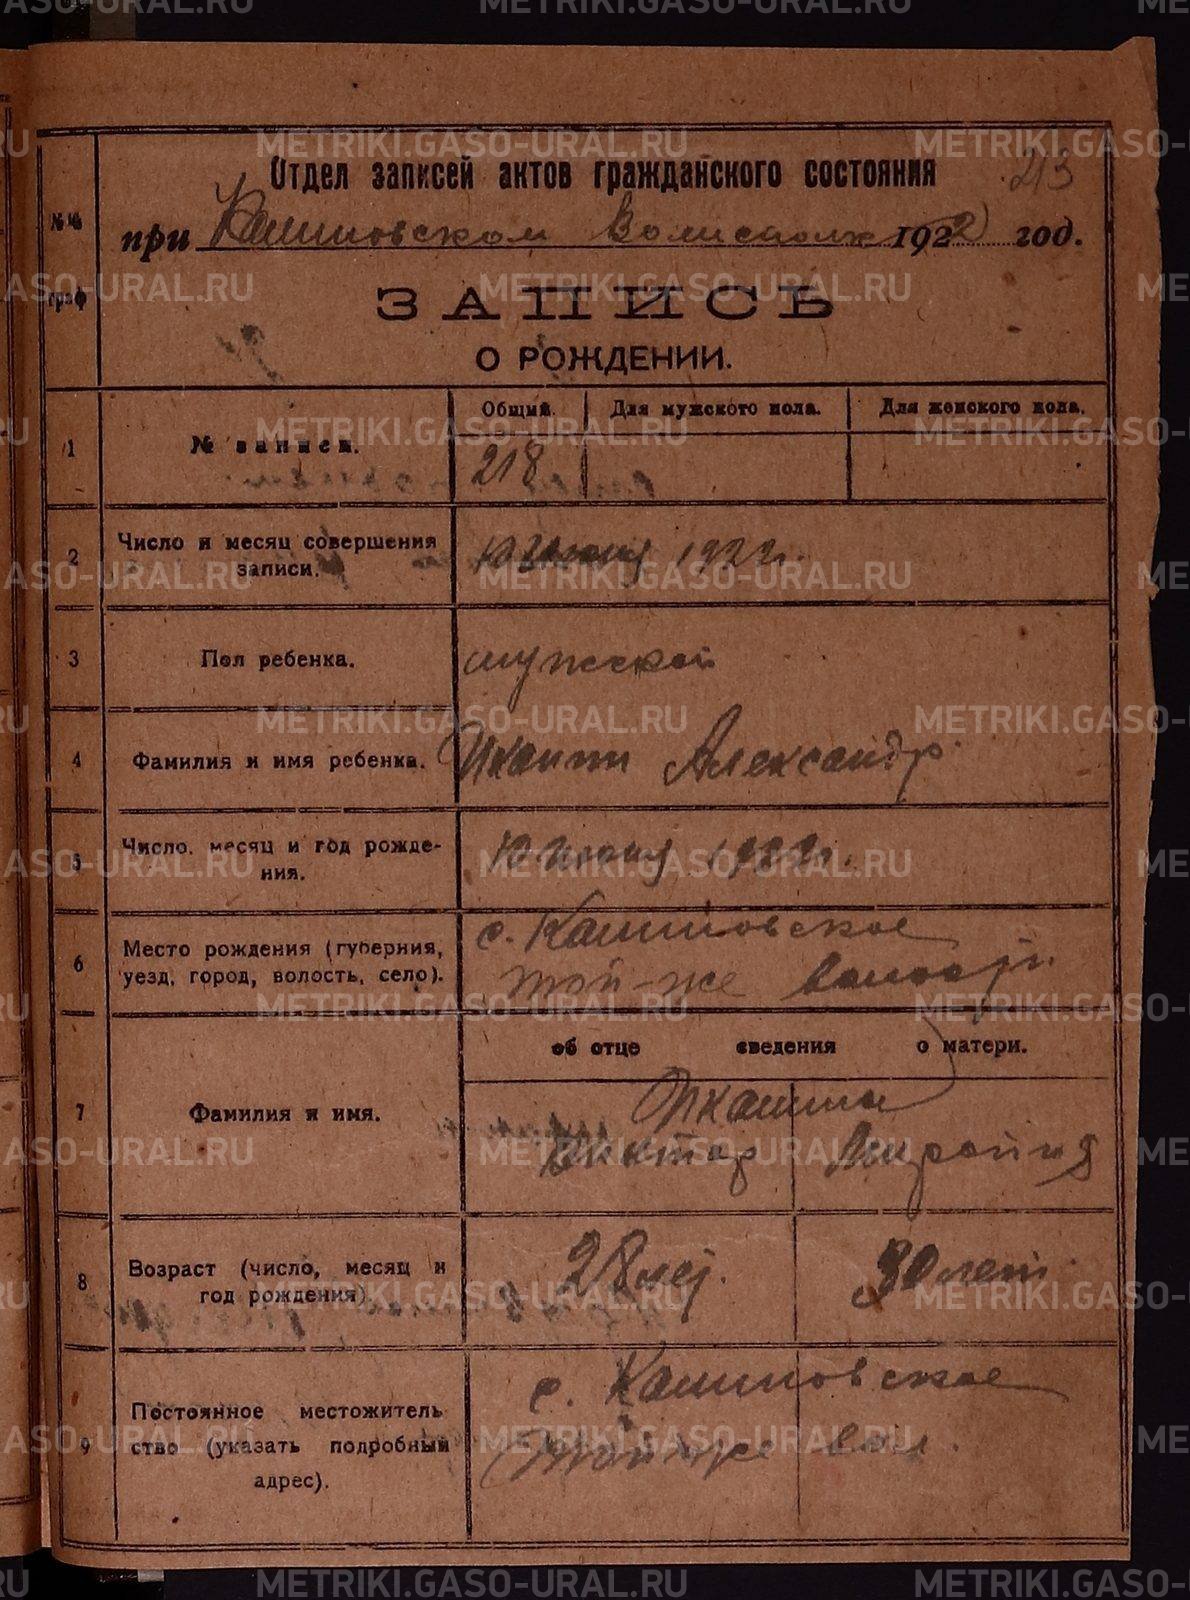 METRIKI.GASO-URAL.RU
213
Отдел записей актов гражданского состояния
№№ граф
при Камышовском Волисполк 1922 год.
ЗАПИСЬ
О РОЖДЕНИИ.
1 № записи. Общий. Для мужского пола. Для женского пола.
218
2 Число и месяц совершения записи. 10 июня 1922 г.
3 Пол ребенка. мужской
4 Фамилия и имя ребенка. Александр
5 Число, месяц и год рождения. 10 июня 1922 г.
6 Место рождения (губерния, уезд, город, волость, село).
той-же волости
об отце сведения о матери.
7 Фамилия и имя.
Виктор
8 Возраст (число, месяц и год рождения). 28 лет. 30 лет
9 Постоянное местожительство (указать подробный адрес).
той же вол.